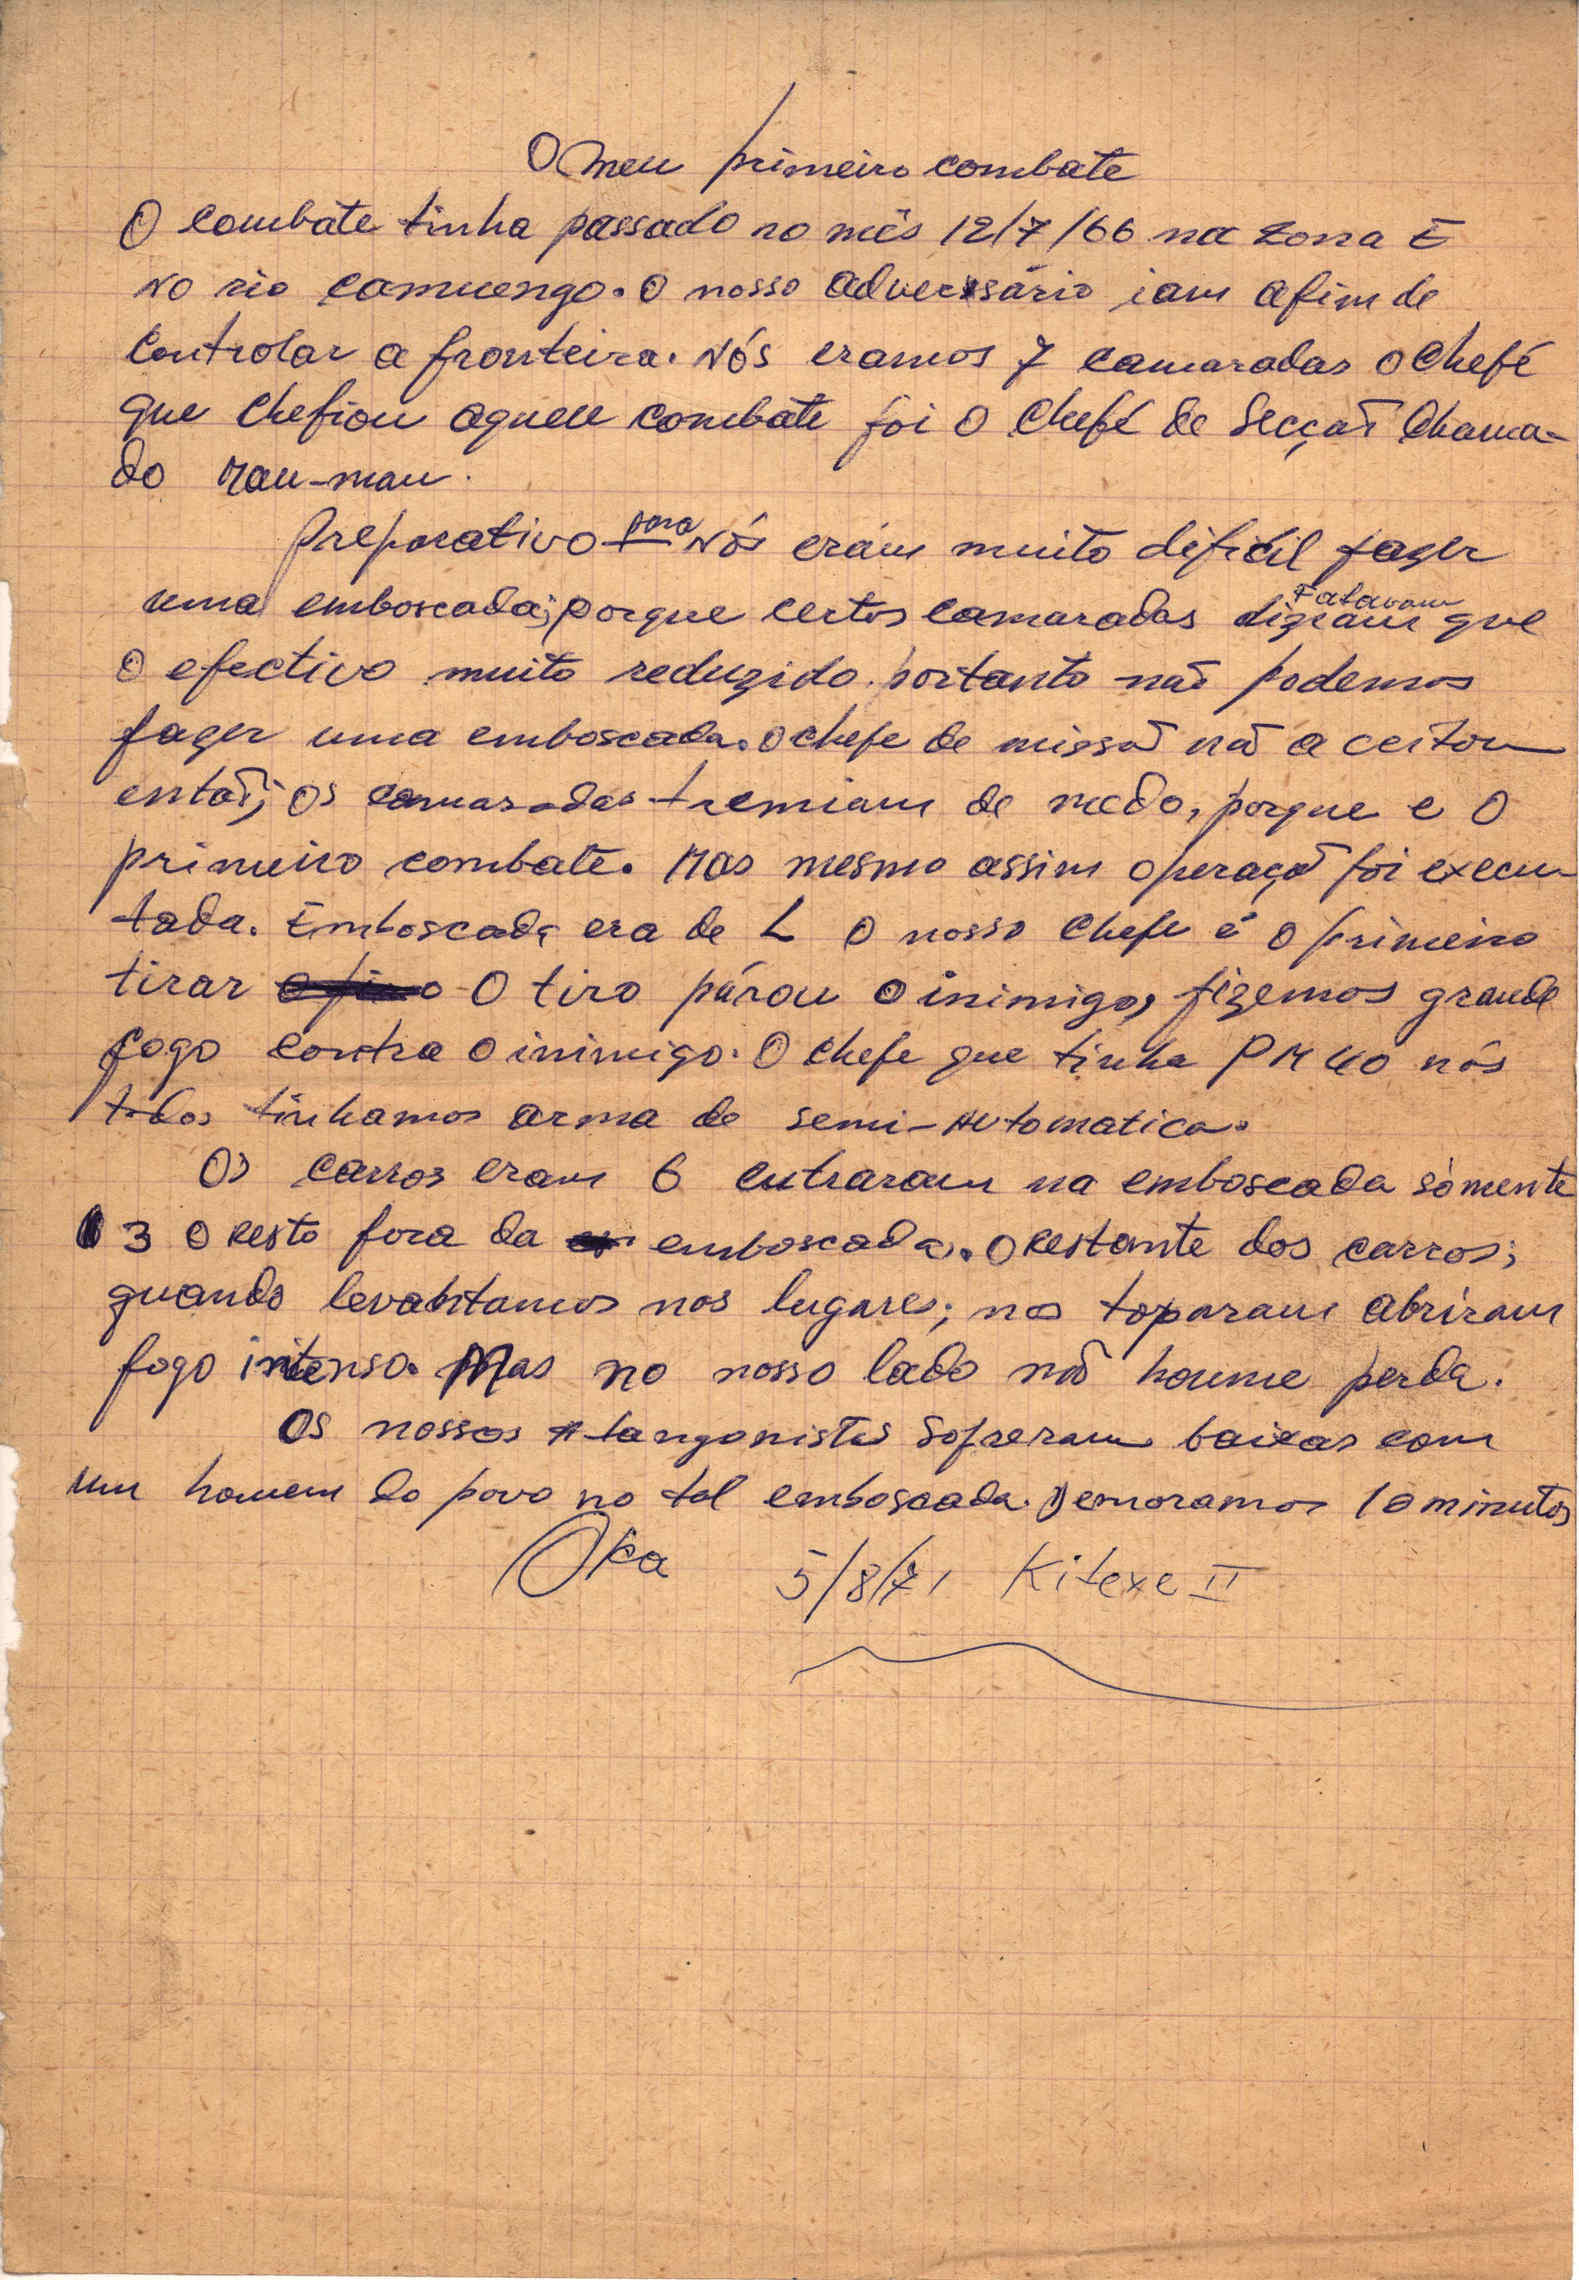 O meu primeiro combate
O combate tinha passado no mês 12/7/66 na zona E
no rio camuengo. O nosso adverssário iam afim de
controlar a fronteira. Nós eramos 7 camaradas o chefé
que chefiou aquele combate foi o chefé de Secção chama-
do Mau-mau.
Preparativo para nós erám muito dificil fazer
uma emboscada; porque certos camaradas diziam Falavam que
o efectivo muito reduzido. portanto não podemos
fazer uma emboscada. o chefe de missão não a ceitou
então; os camaradas tremiam de medo, porque e o
primeiro combate. Mas mesmo assim operação foi execu-
tada. Emboscada era de L o nosso chefe é o primeiro
tirar o tiro párou o inimigo, fizemos grande
fogo contra o inimigo. O chefe que tinha PM 40 nós
todos tinhamos arma de semi-automatica.
Os carros eram 6 entraram na emboscada sómente
3 o resto fora da emboscada. o restante dos carros;
quando levantamos nos lugares; nos toparam abriram
fogo intenso. Mas no nosso lado não houve perda.
Os nossos tangonistas sofreram baixas com
um homem do povo no tal emboscada. Demoramos 10 minutos
Oka 5/8/71 Kitexe II